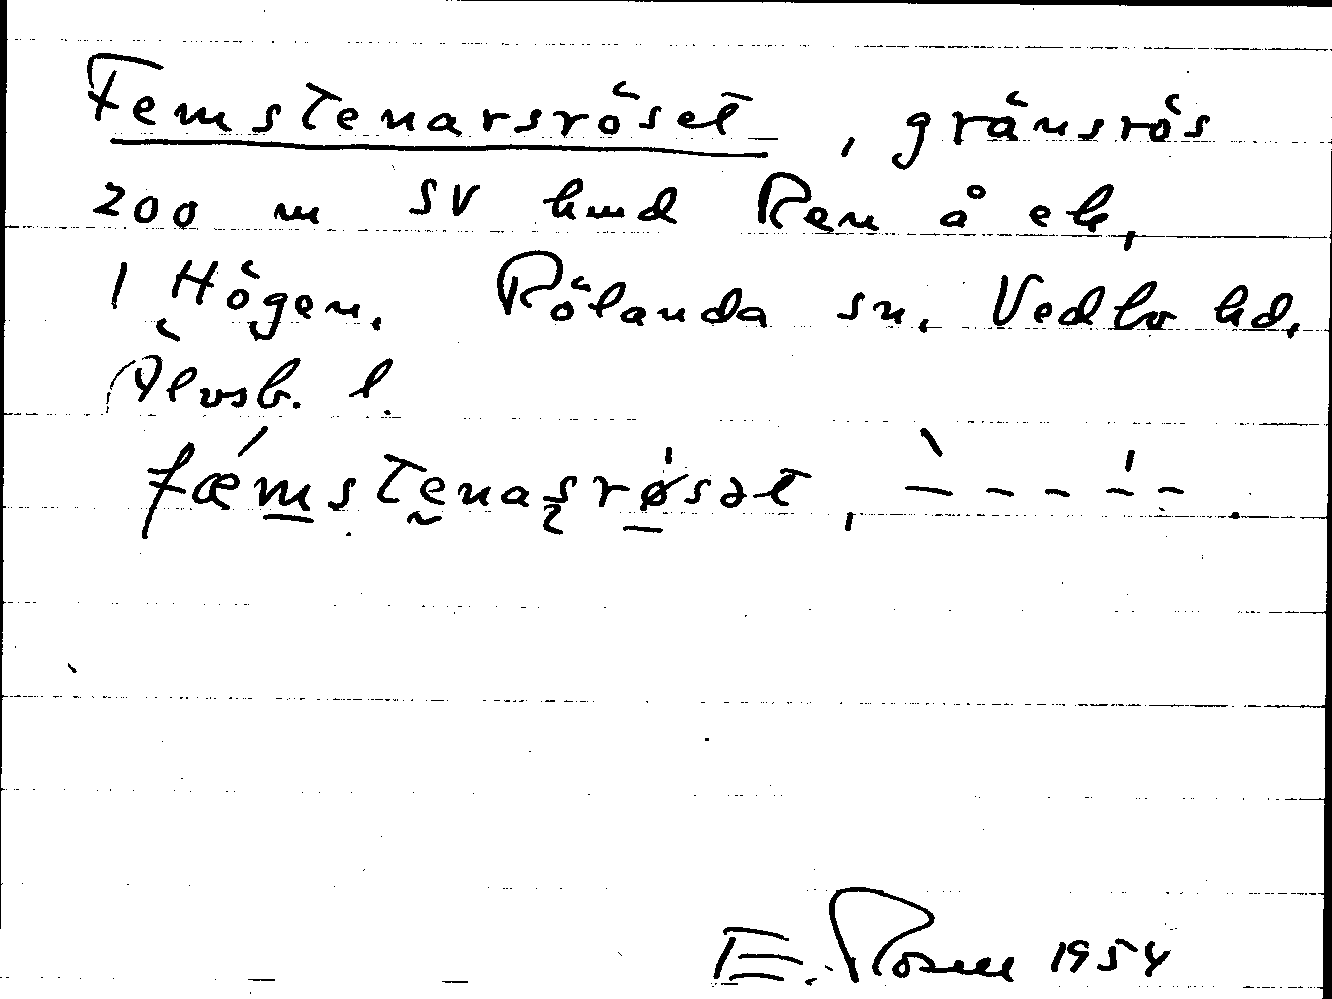 Femstenarsröset, gränsrös
200 m SV hmd Ren å ek,
1 Högen. Rölanda sn, Vedbo hd,
Älvsb. l.
fæmstenasrøsət, – – – – – .
E. Rosell 1954